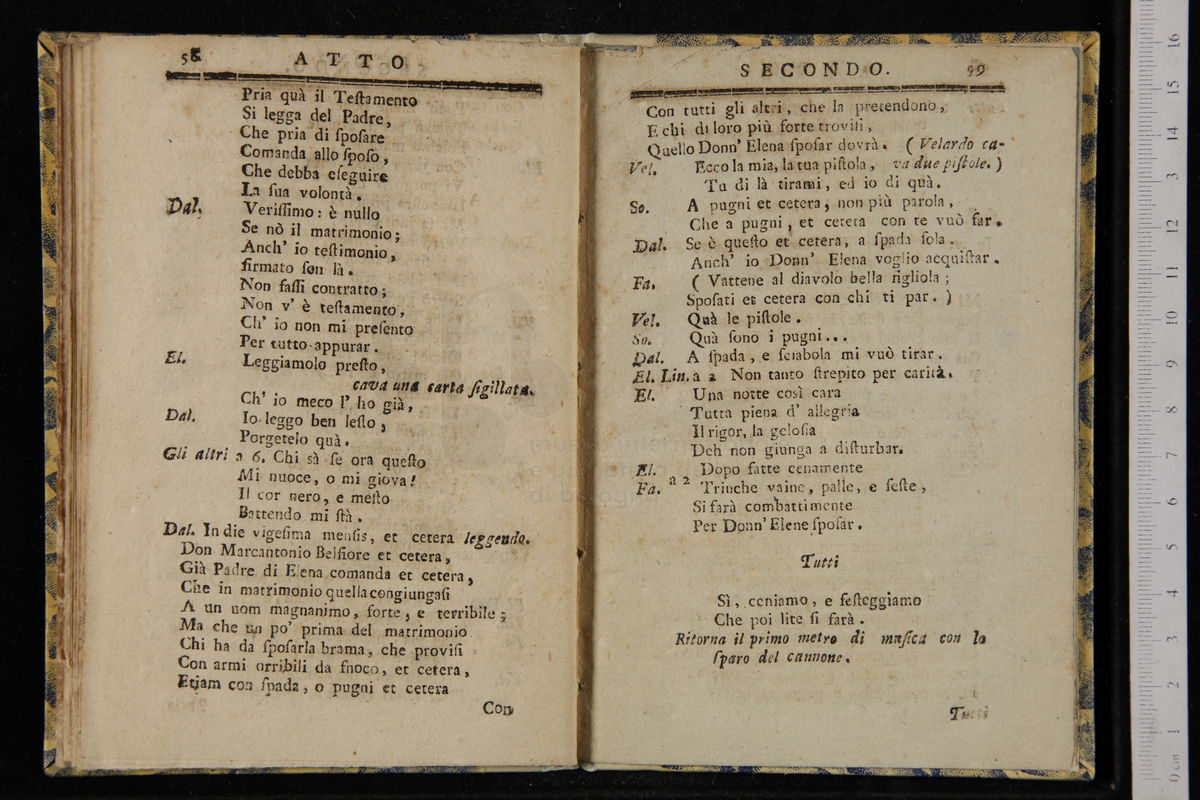 58 ATTO
Pria quà il Teſtamento
Si legga del Padre,
Che pria di ſpoſare
Comanda allo ſpoſo,
Che debba eſeguire
La ſua volontà.
Dal. Veriſſimo: è nullo
Se nò il matrimonio;
Anch' io teſtimonio,
firmato ſon là.
Non faſſi contratto;
Non v' è teſtamento,
Ch' io non mi preſento
Per tutto appurar.
El. Leggiamolo preſto,
cava una carta ſigillata.
Ch' io meco l' ho già,
Dal. Io leggo ben leſto,
Porgetelo quà.
Gli altri a 6. Chi sà ſe ora queſto
Mi nuoce, o mi giova!
Il cor nero, e meſto
Battendo mi ſtà.
Dal. In die vigeſima menſis, et cetera leggendo.
Don Marcantonio Belfiore et cetera,
Già Padre di Elena comanda et cetera,
Che in matrimonio quella congiungaſi
A un uom magnanimo, forte, e terribile;
Ma che un po' prima del matrimonio
Chi ha da ſpoſarla brama, che proviſi
Con armi orribili da fuoco, et cetera,
Etjam con ſpada, o pugni et cetera
Con
SECONDO. 59
Con tutti gli altri, che la pretendono,
E chi di loro più forte troviſi,
Quello Donn' Elena ſpoſar dovrà. ( Velardo ca-
Vel. Ecco la mia, la tua piſtola, va due piſtole. )
Tu di là tirami, ed io di quà.
So. A pugni et cetera, non più parola,
Che a pugni, et cetera con te vuò far.
Dal. Se è queſto et cetera, a ſpada ſola.
Anch' io Donn' Elena voglio acquiſtar.
Fa. ( Vattene al diavolo bella figliola;
Spoſati et cetera con chi ti par. )
Vel. Quà le piſtole.
So. Quà ſono i pugni...
Dal. A ſpada, e ſciabola mi vuò tirar.
El. Lin. a 2 Non tanto ſtrepito per carità.
El. Una notte così cara
Tutta piena d' allegria
Il rigor, la geloſia
Deh non giunga a diſturbar.
El. Dopo fatte cenamente
Fa. a 2 Trinche vaine, palle, e feſte,
Si farà combattimente
Per Donn' Elene ſpoſar.
Tutti
Sì, ceniamo, e feſteggiamo
Che poi lite ſi farà.
Ritorna il primo metro di muſica con lo
ſparo del cannone.
Tutti